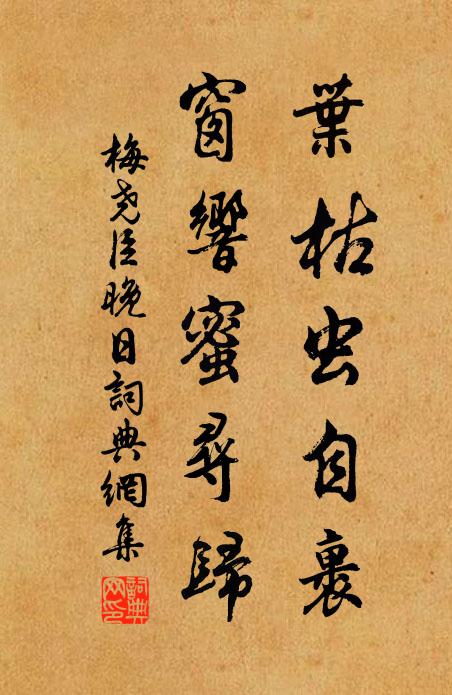 葉枯虫自裹
窗響蜜尋歸
梅堯臣晚日詞典網集
詞典網印